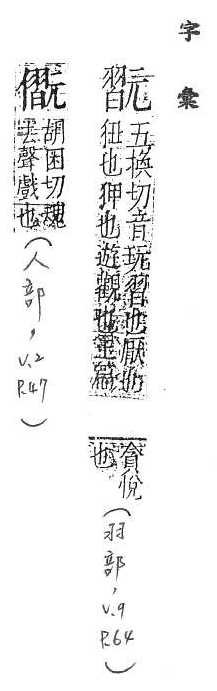 字彙
翫
五換切音玩習也厭也
狃也狎也遊觀也 篇
貪悅
也
(羽部, v.9 P.64)
胡困切魂
去聲戲也
(人部, v.2 P.47)